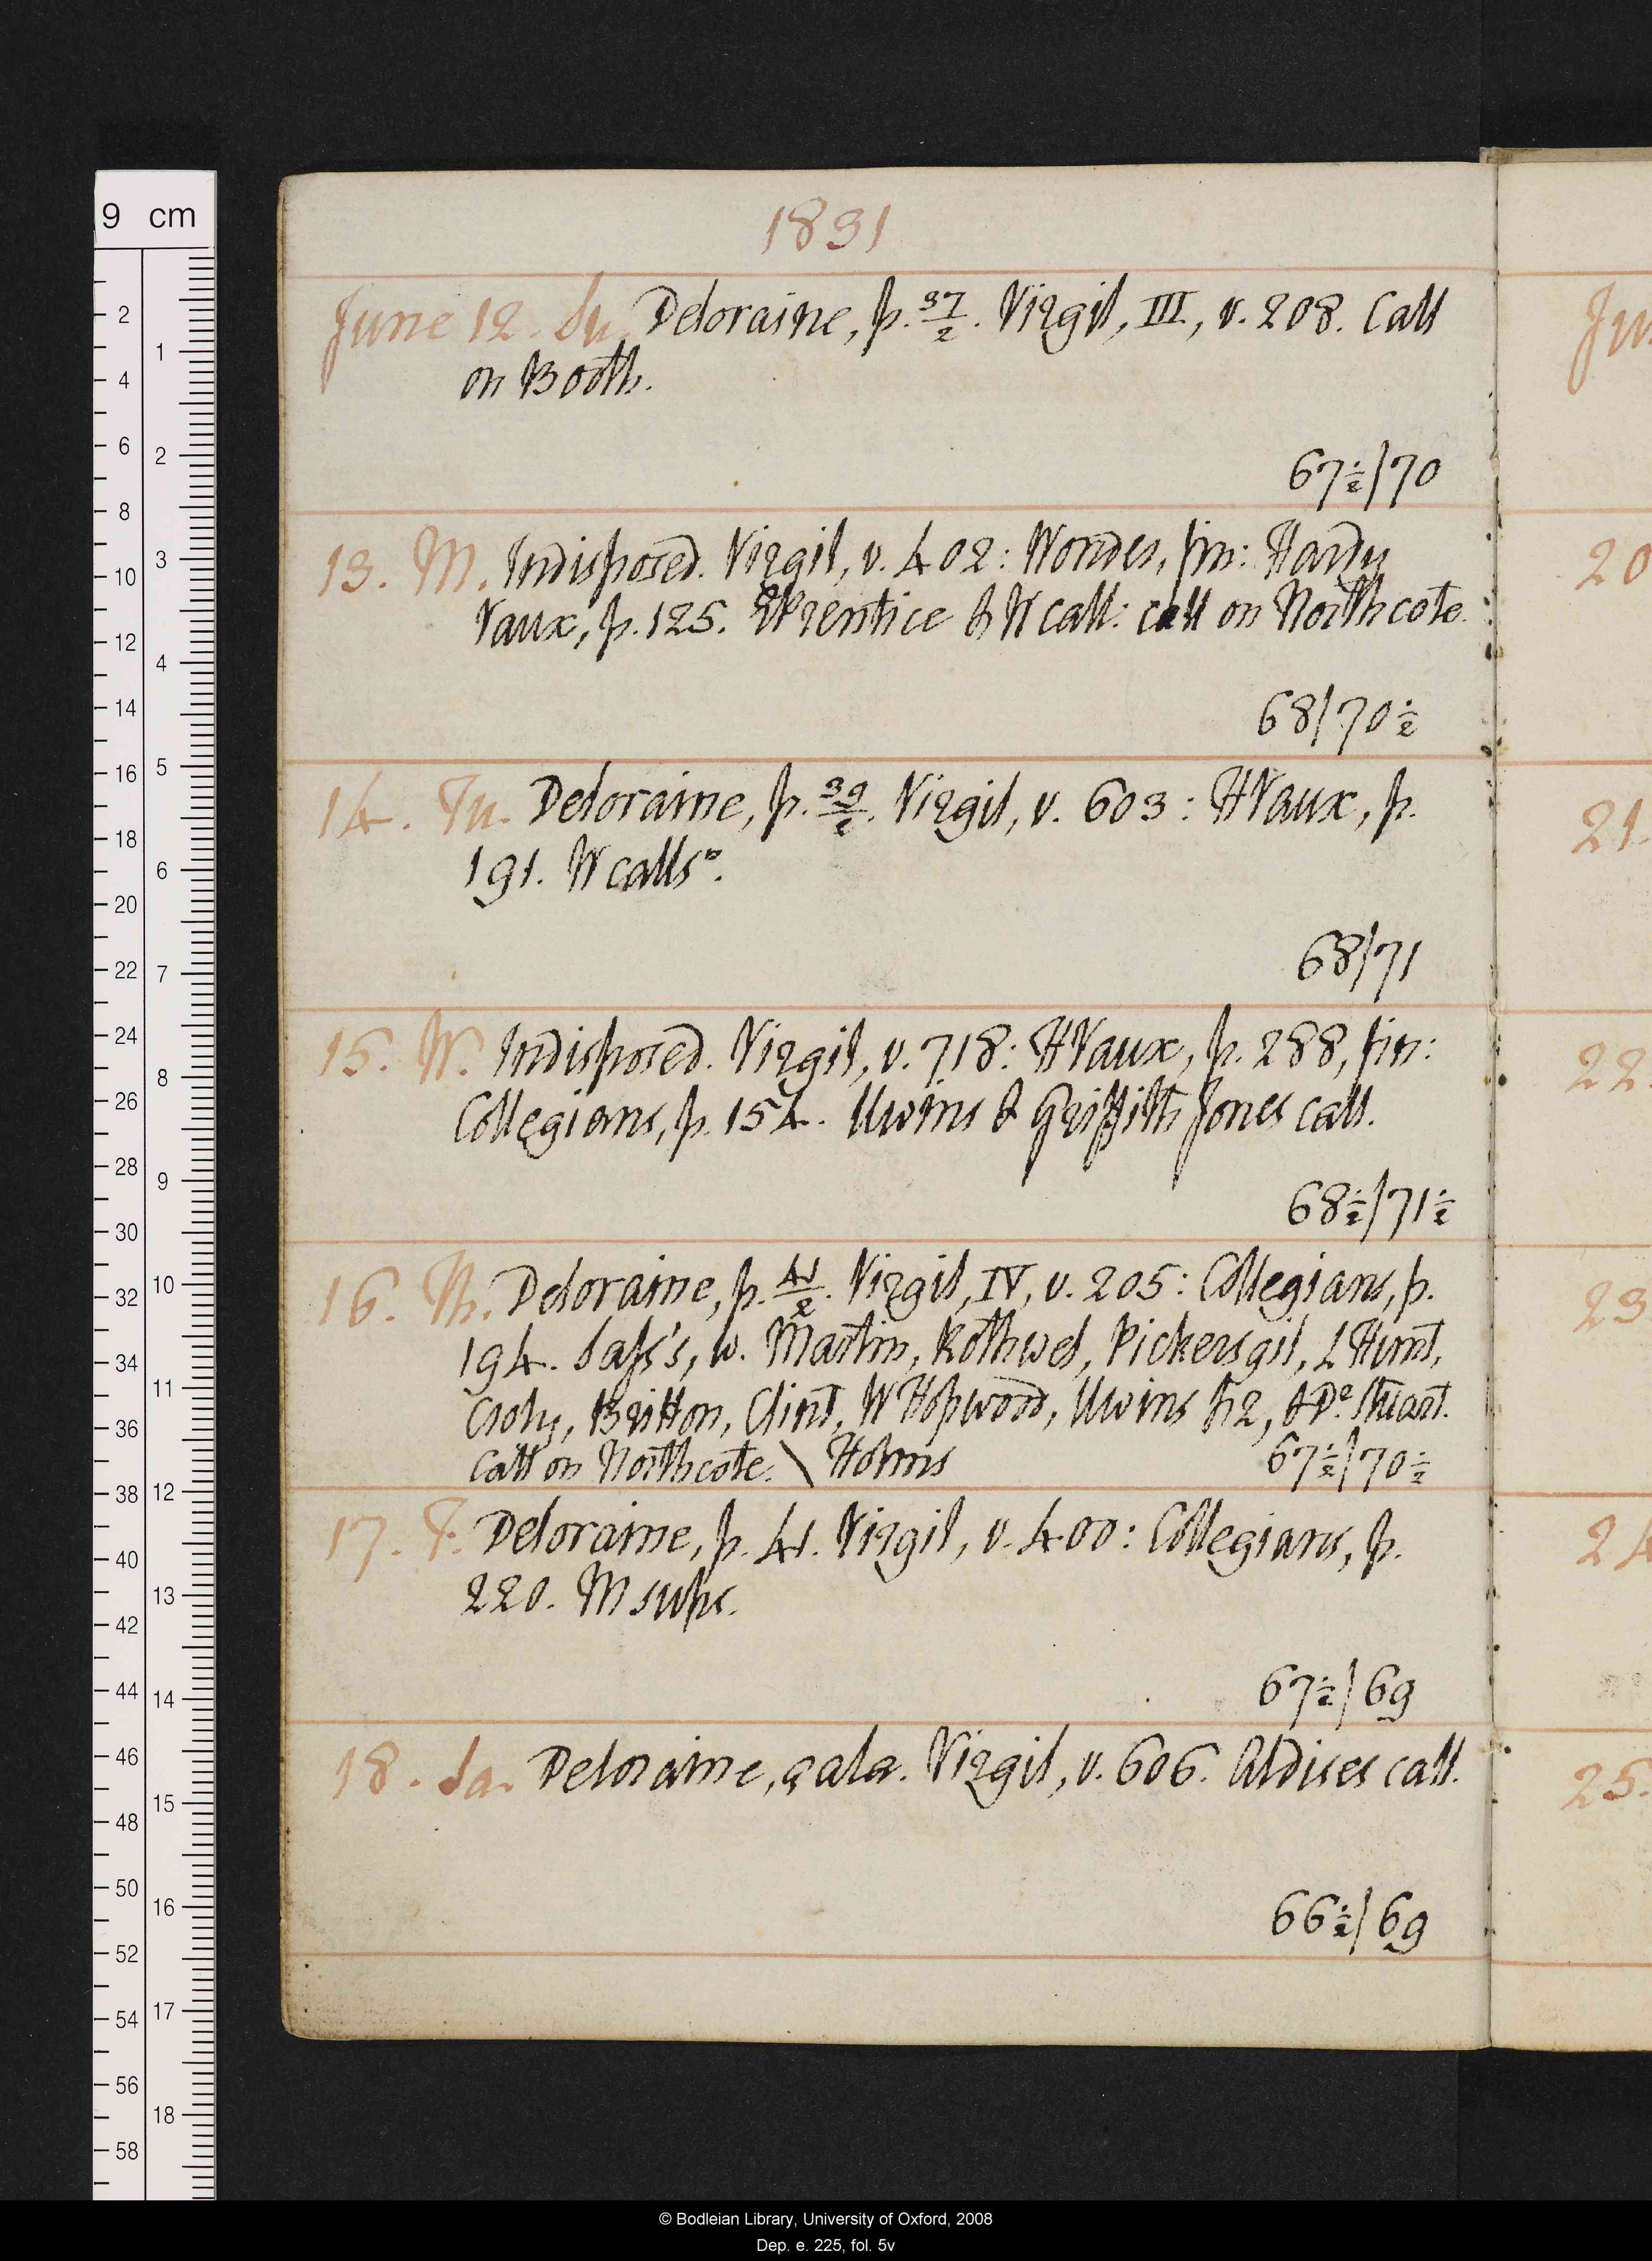 1831
June 12. Su. Deloraine, p. 37/2. Virgil, III, v. 208. Call
on Booth.
67½/70
13. M. Indisposed. Virgil, v. 402: Wondes, fin: Hardy
Vaux, p. 125. EPrentice & W call: call on Northcote.
68/70½
14. Tu. Deloraine, p. 39/2. Virgil, v. 603: HVaux, p.
191. W callsº.
68/71
15. W. Indisposed. Virgil, v. 718: HVaux, p. 288, fin:
Collegians, p. 154. Uwins & Griffith Jones call.
68½/71½
16. Th. Deloraine, p. 41/2. Virgil, IV, v. 205: Collegians, p.
194. Sass's, w. Martin, Rothwel, Pickersgil, L Hunt,
Croly, Britton, Clint, W Hopwood, Uwins h2, & Dº. Stuart.
Call on Northcote. \ Holms
67½/70½
17. F. Deloraine, p. 41. Virgil, v. 400: Collegians, p.
220. M sups.
67½/69
18. Sa. Deloraine, çala. Virgil, v. 606. Aldises call.
66½/69
Ju
20
21.
22.
23
24
25.
9 cm
2
4
6
8
10
12
14
16
18
20
22
24
26
28
30
32
34
36
38
40
42
44
46
48
50
52
54
56
58
1
2
3
4
5
6
7
8
9
10
11
12
13
14
15
16
17
18
© Bodleian Library, University of Oxford, 2008
Dep. e. 225, fol. 5v